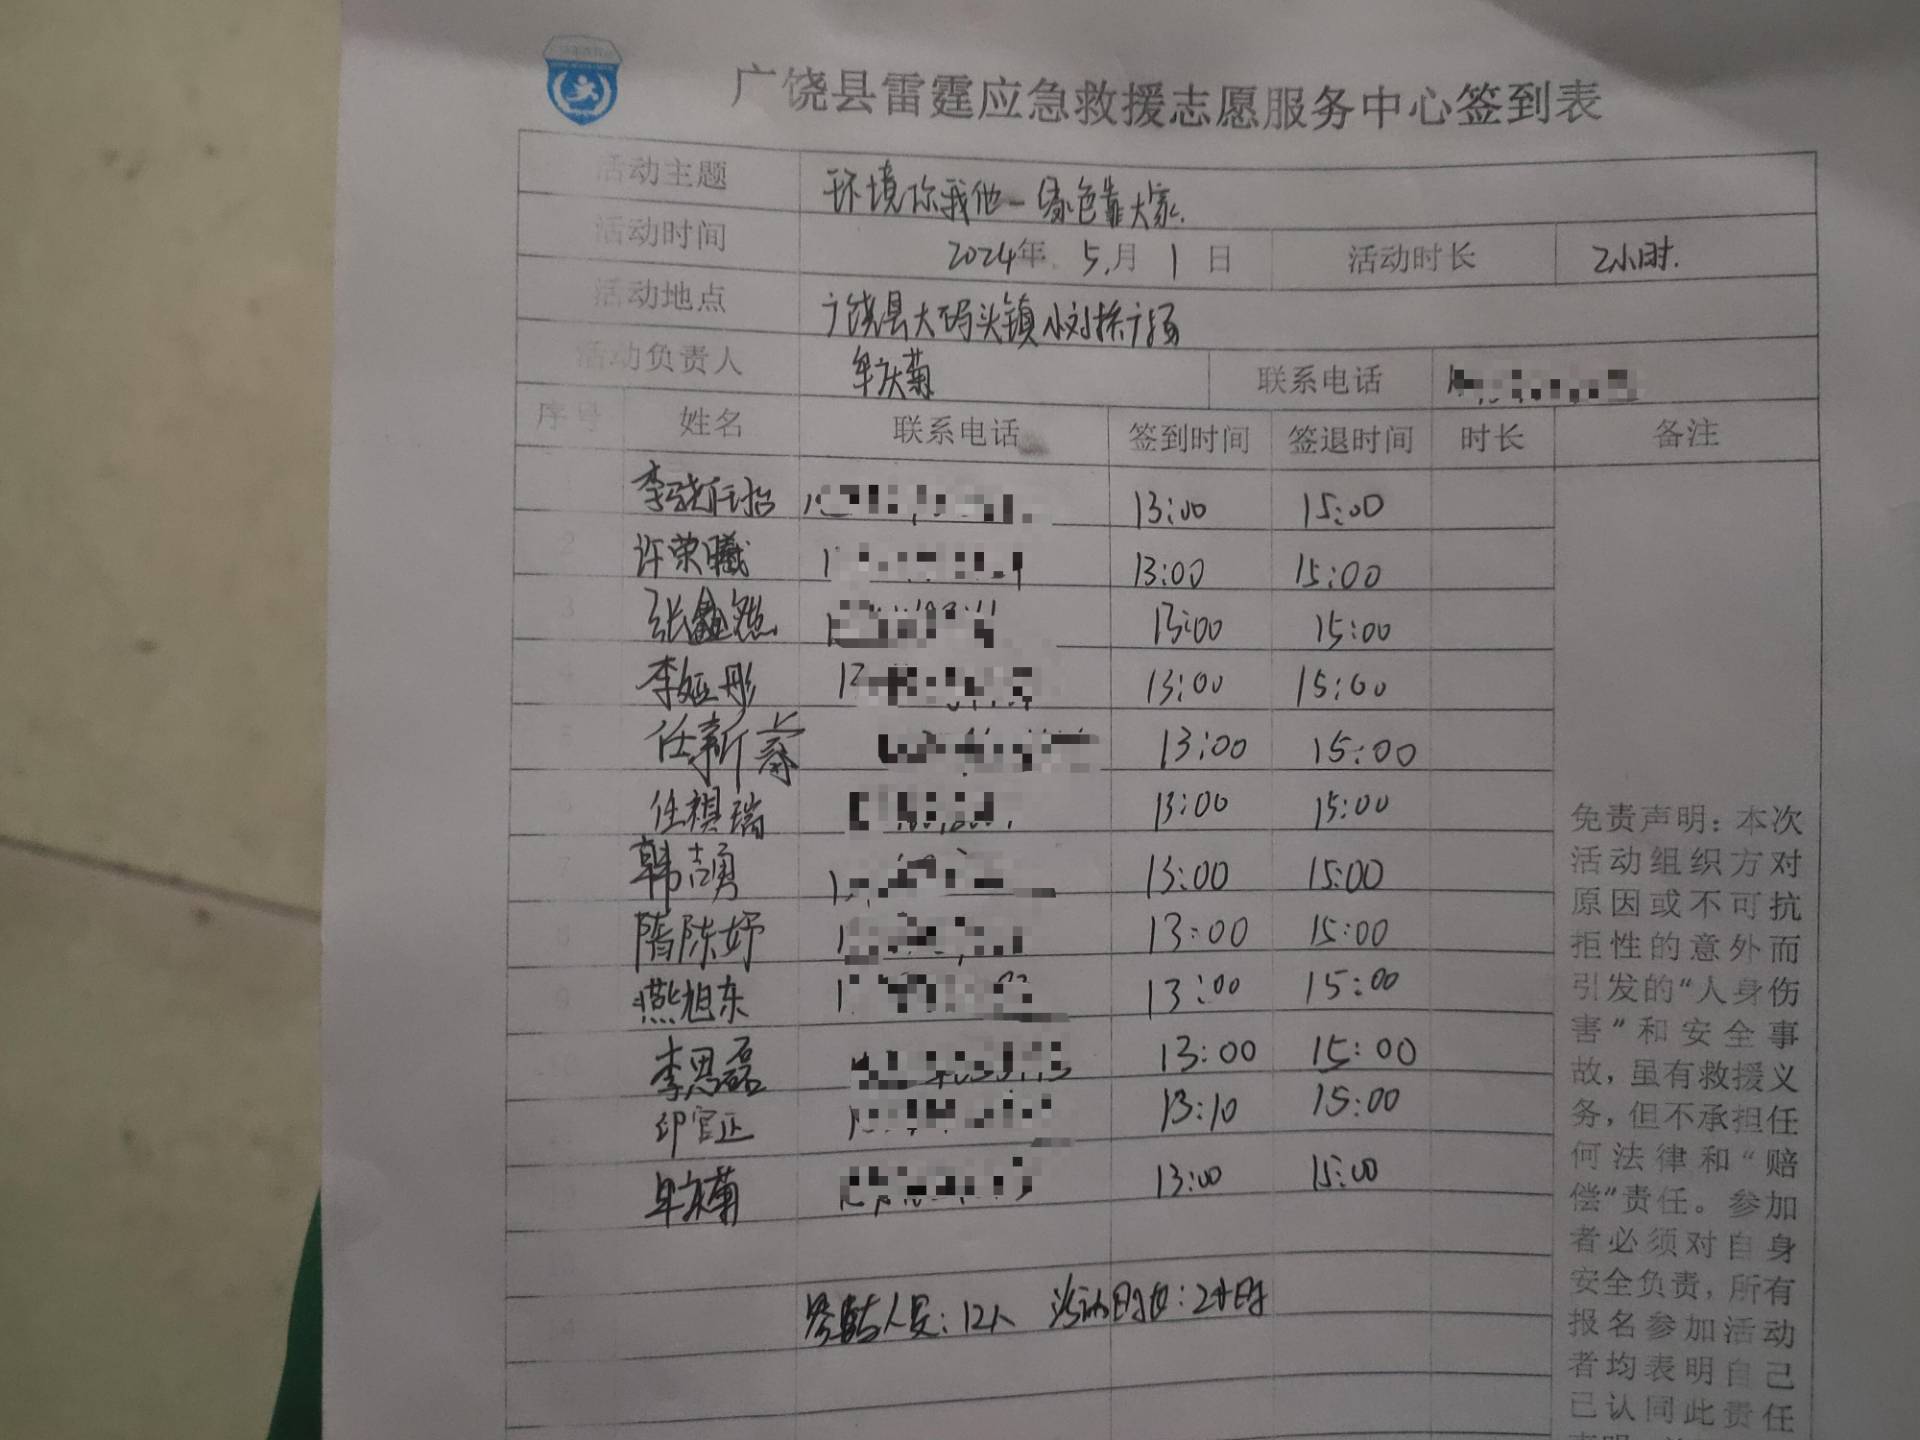 广饶县雷霆应急救援志愿服务中心签到表
活动主题 环境你我他-绿色靠大家.
活动时间 2024年 5月 1日 活动时长 2小时.
活动地点 广饶县大码头镇小刘桥广场
活动负责人 牟庆菊 联系电话
序号 姓名 联系电话 签到时间 签退时间 时长 备注
1 13:00 15:00
2 许荣曦 13:00 15:00
3 张鑫然 13:00 15:00
4 李娅彤 13:00 15:00
5 任新 13:00 15:00
6 任祺瑞 13:00 15:00
7 韩志勇 13:00 15:00
8 隋陈妤 13:00 15:00
9 燕旭东 13:00 15:00
10 李思磊 13:00 15:00
印官正 13:10 15:00
12 牟庆菊 13:00 15:00
14 人员:12人 活动时长:2小时
免责声明：本次
活动组织方对
原因或不可抗
拒性的意外而
引发的“人身伤
害”和安全事
故，虽有救援义
务，但不承担任
何法律和“赔
偿”责任。参加
者必须对自身
安全负责，所有
报名参加活动
者均表明自己
已认同此责任